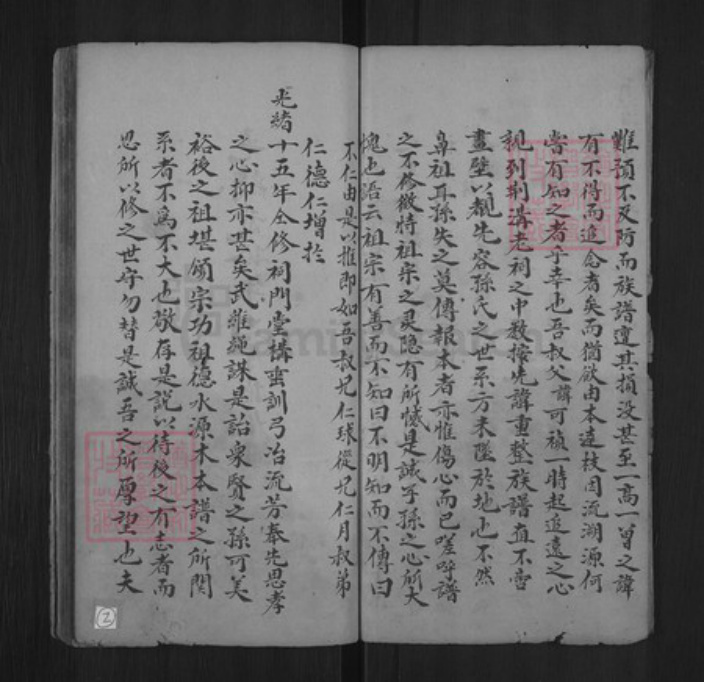 難預不及防而族譜遭其損沒甚至一高一曾之諱
有不得而追念者矣而猶欲由本達枝因流溯源何
嘗有知之者乎幸也吾叔父諱可禎一時起追遠之心
親列荊溝老祠之中教按先諱重整族譜直不啻
畫壁以覩先容孫氏之世系方未墜於地也不然
鼻祖耳孫失之莫傳報本者亦惟傷心而已嗟呼譜
之不修微特祖宗之灵隐有所憾是誠子孫之心所大
愧也語云祖宗有善而不知曰不明知而不傳曰
不仁由是以推即如吾叔兄仁球從兄仁月叔弟
仁德仁增於
光緒十五年仝修祠門堂構垂訓弓冶流芳奉先思孝
之心抑亦甚矣武維繩誅是詒衆賢之孫可美
裕後之祖堪頌宗功祖德水源木本譜之所関
系者不爲不大也敬存是說以待後之有志者而
思所以修之世守勿替是誠吾之所厚望也夫
2